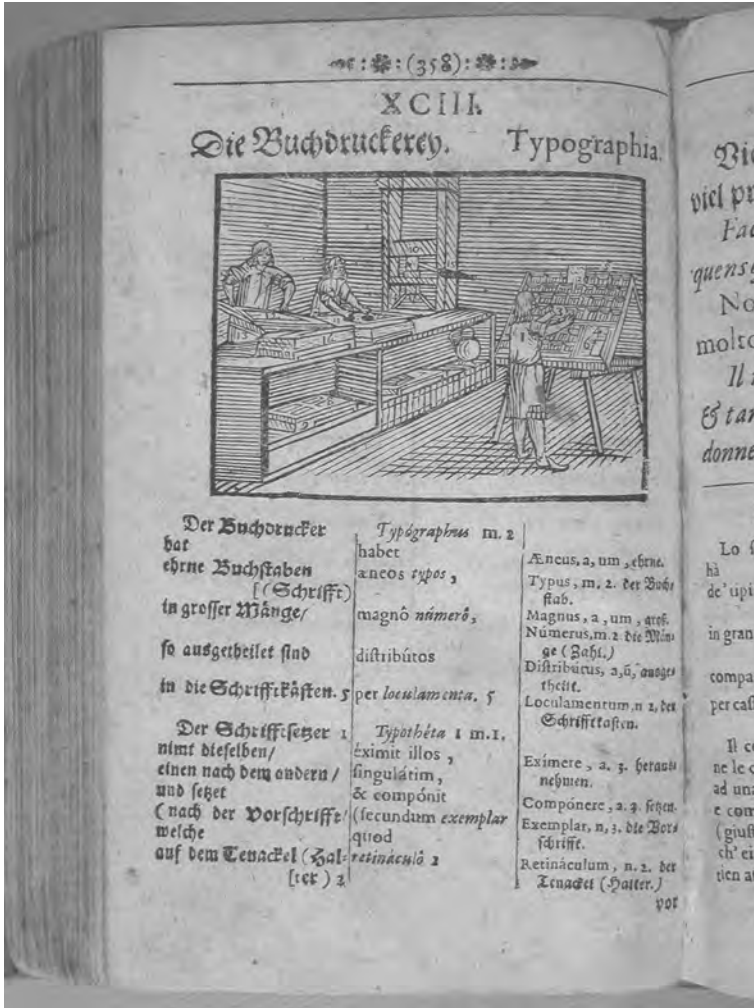 (358)
XCIII.
Die Buchdruckerey. Typographia.
Der Buchdrucker
hat
ehrne Buchstaben
[(Schrifft)
in grosser Mänge/
so ausgetheilet sind
in die Schrifftkästen. 5
Der Schrifftsetzer 1
nimt dieselben/
einen nach dem andern/
und setzet
(nach der Vorschrifft/
welche
auf dem Tenackel (Hal-
[ter) 2
Typógraphus m. 2
habet
æneos typos,
magnô númerô,
distribútos
per loculamenta. 5
Typothéta 1 m.1.
éximit illos,
singulátim,
& compónit
(secundum exemplar
quod
retináculô 2
Æneus, a, um, ehrne.
Typus, m. 2. der Buch-
stab.
Magnus, a, um, groß.
Númerus, m. 2 die Män-
ge (Zahl.)
Distribútus, a, ũ, ausge-
theilt.
Loculamentum, n 2, der
Schrifftkasten.
Exímere, a. 3. heraus-
nehmen.
Compónere, a. 3. setzen.
Exemplar, n, 3. die Vor-
schrifft.
Retináculum, n. 2. der
Tenackel (Halter.)
vor
viel
quens
No
molto
Il
& tan
donne
Lo
hà
de' tipi
in gran
compa
per cass
Il
ne le
ad una
e com
(giust
ch' ei
tien